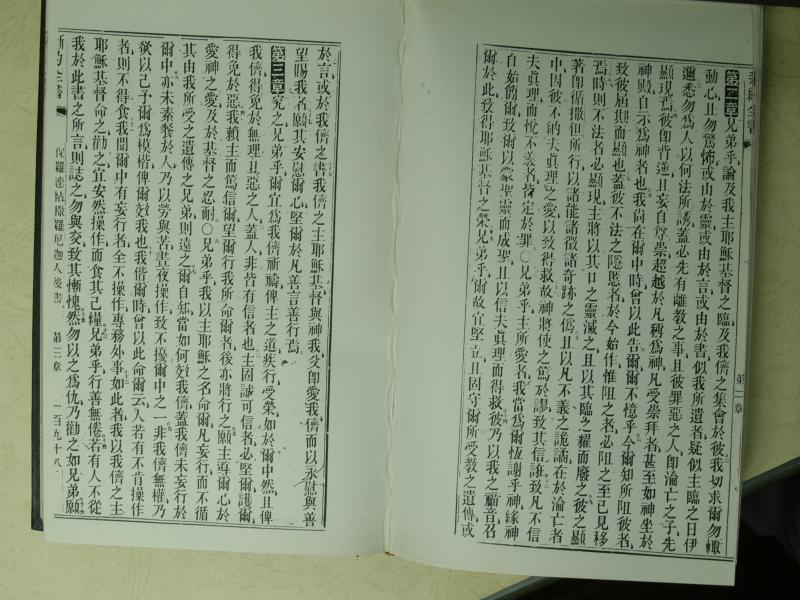 新約全書
第二章
第二章兄弟乎論及我主耶穌基督之臨及我儕之集會於彼我切求爾勿輙
動心且勿驚怖或由於靈或由於言或由於書似我所遺者疑似主臨之日伊
邇悉勿爲人以何法所誘蓋必先有離教之事且彼罪惡之人即淪亡之子先
顯現焉彼即背逆且妄自尊崇超越於凡稱爲神凡受崇拜者甚至如神坐於
神殿自示爲神者也我尚在爾中時曾以此告爾爾不憶乎今爾知所阻彼者
致彼屆期而顯也蓋彼不法之隱慝者於今始作惟阻之者必阻之至已見移
焉時則不法者必顯現主將以其口之靈滅之且以其臨之耀而廢之彼之顯
著即循撒但所行以諸能諸徵諸奇跡之僞且以凡不義之詭譎在於淪亡者
中因彼不納夫眞理之愛以致得救故神將使之篤於謬致其信誑致凡不信
夫眞理而悅不義者皆定於罪○兄弟乎主所愛者我當爲爾恆謝乎神緣神
自始簡爾致爾以蒙聖靈而成聖且以信夫眞理而得救彼乃以我之福音召
爾於此致得耶穌基督之榮兄弟乎爾故宜堅立且固守爾所受教之遺傳或
於言或於我儕之書我儕之主耶穌基督與神我父即愛我儕而以永慰與善
望賜我者願其安慰爾心堅爾於凡善言善行焉
第三章究之兄弟乎爾宜爲我儕祈禱俾主之道疾行受榮如於爾中然且俾
我儕得免於無理且惡之人蓋人非皆有信者也主固誠可信者必堅爾護爾
得免於惡我賴主而篤信爾望爾行我所命爾者後亦將行之願主導爾心於
愛神之愛及於基督之忍耐○兄弟乎我以主耶穌之名命爾凡妄行而不循
其由我所受之遺傳之兄弟則遠之爾自知當如何效我儕蓋我儕未妄行於
爾中亦未素餐於人乃以勞與苦晝夜操作致不擾爾中之一非我儕無權乃
欲以己予爾爲模楷俾爾效我也我偕爾時曾以此命爾云人若有不肯操作
者則不得食我聞爾中有妄行者全不操作專務外事如此者我以我儕之主
耶穌基督命之勸之宜安然操作而食其己糧兄弟乎行善無倦若有人不從
我於此書之所言則誌之勿與交致其慚愧然勿以之爲仇乃勸之如兄弟願
新約全書
保羅達帖撒羅尼迦人後書
第三章
一百九十八